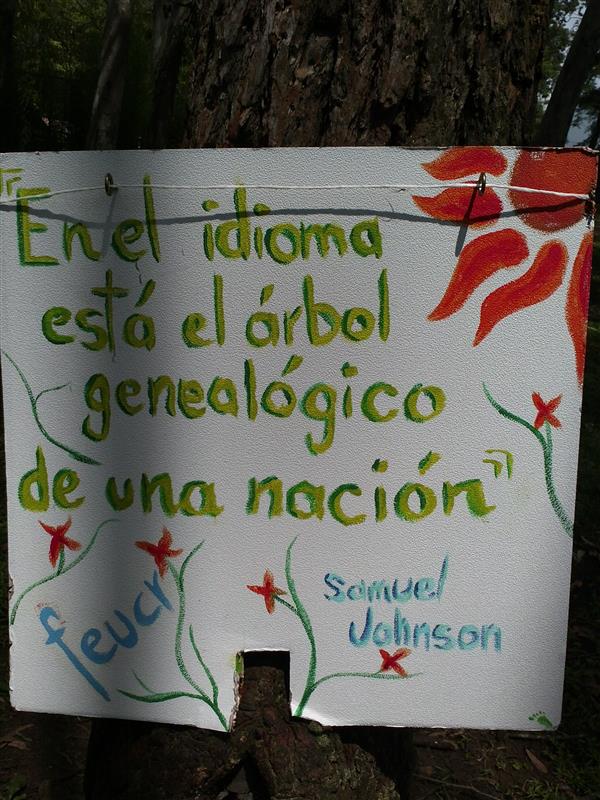 "En el idioma
está el árbol
genealógico
de una nación"
Samuel
Johnson
feucr